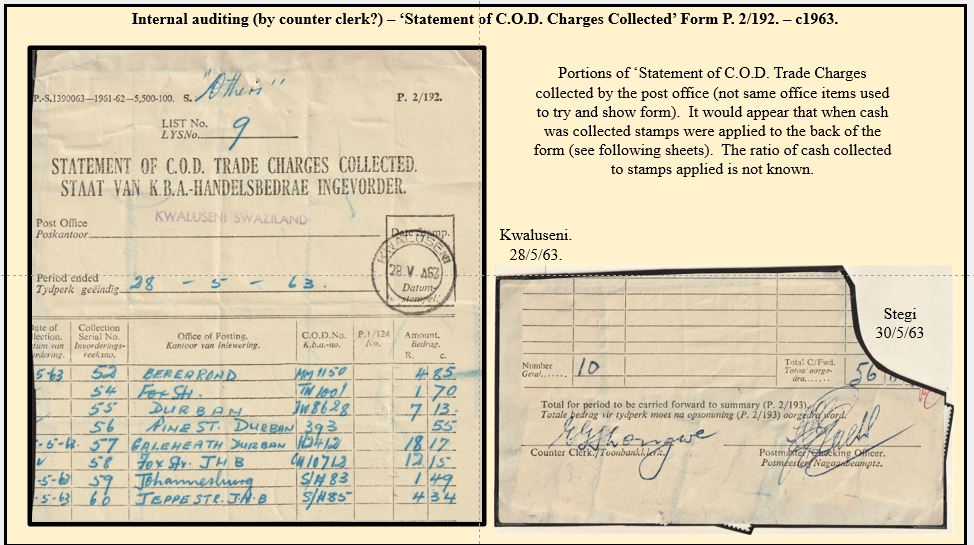 Internal auditing (by counter clerk?) – ‘Statement of C.O.D. Charges Collected’ Form P. 2/192. – c1963.
P.-S.1390063—1961-62—5,500-100. S.
"Others"
P. 2/192.
LIST No.
LYSNo.
9
STATEMENT OF C.O.D. TRADE CHARGES COLLECTED.
STAAT VAN K.B.A.-HANDELSBEDRAE INGEVORDER.
Post Office
Poskantoor
KWALUSENI SWAZILAND
Date Stamp.
Datum-
stempel.
KWALUSENI
28 V 63
Period ended
Tydperk geëindig
28 - 5 - 63.
Date of
Collection
Serial No.
Invorderings-
reeksno.
Office of Posting.
Kantoor van Inlewering.
C.O.D.No.
K.b.a.-no.
P.1/124
No.
Amount.
Bedrag.
R. c.
5-63 52 BEREAROAD MM1150 4 85
54 Fox St. 1 70
55 DURBAN 8628 7 13
56 PINE ST. DURBAN 393 55
-5-63 57 GALEHEATH DURBAN 18 17
58 Fox Str. JHB 10712 12 15
-5-63 59 Johannesburg S/H83 1 49
-5-63 60 JEPPE STR. J.H.B S/H85 4 34
Portions of ‘Statement of C.O.D. Trade Charges
collected by the post office (not same office items used
to try and show form). It would appear that when cash
was collected stamps were applied to the back of the
form (see following sheets). The ratio of cash collected
to stamps applied is not known.
Kwaluseni.
28/5/63.
Stegi
30/5/63
Number
Getal
10
Total C/Fwd.
Totaal oorge-
dra
56
Total for period to be carried forward to summary (P. 2/193).
Totale bedrag vir tydperk moet na opsomming (P. 2/193) oorgedra word.
Counter Clerk./Toonbankklerk.
Postmaster/Checking Officer.
Posmeester/Nagaanbeampte.